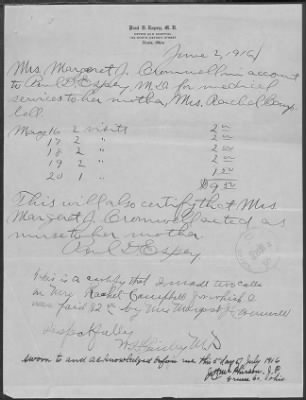 Paul D. Espey, M. D.
Xenia, Ohio
June 2, 1916
Mrs. Margaret J. Cromwell in account
to Paul D. Espey, M.D. for medical
services to her mother, Mrs. Rachel Camp-
bell
May 16 2 visits 2 00
17 2 " 2 00
18 2 " 2 00
19 2 " 2 00
20 1 " 1 00
$9 00
This will also certify that Mrs
Margaret J. Cromwell acted as
nurse to her mother
Paul D. Espey
This is a certify that I made two calls
on Mrs Rachel Campbell for which I
was paid $2 00 by Mrs Margaret J. Cromwell
Respectfully
M.D.
sworn to and acknowledged before me this 5 day of July 1916
J.P.
Greene Co. Ohio